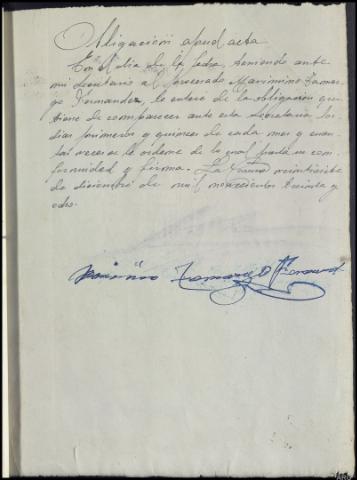 Obligación apud acta
En el dia de la fecha, teniendo ante
mi Secretario al procesado Maximino Tamar-
go Fernandez, le entero de la obligación que
tiene de comparecer ante esta Secretaria los
dias primeros y quinces de cada mes y cuan-
tas veces se le ordene de lo cual presta su con-
formidad y firma. La veintisiete
de diciembre de mil novecientos treinta y
ocho.
Maximino Tamargo Fernandez